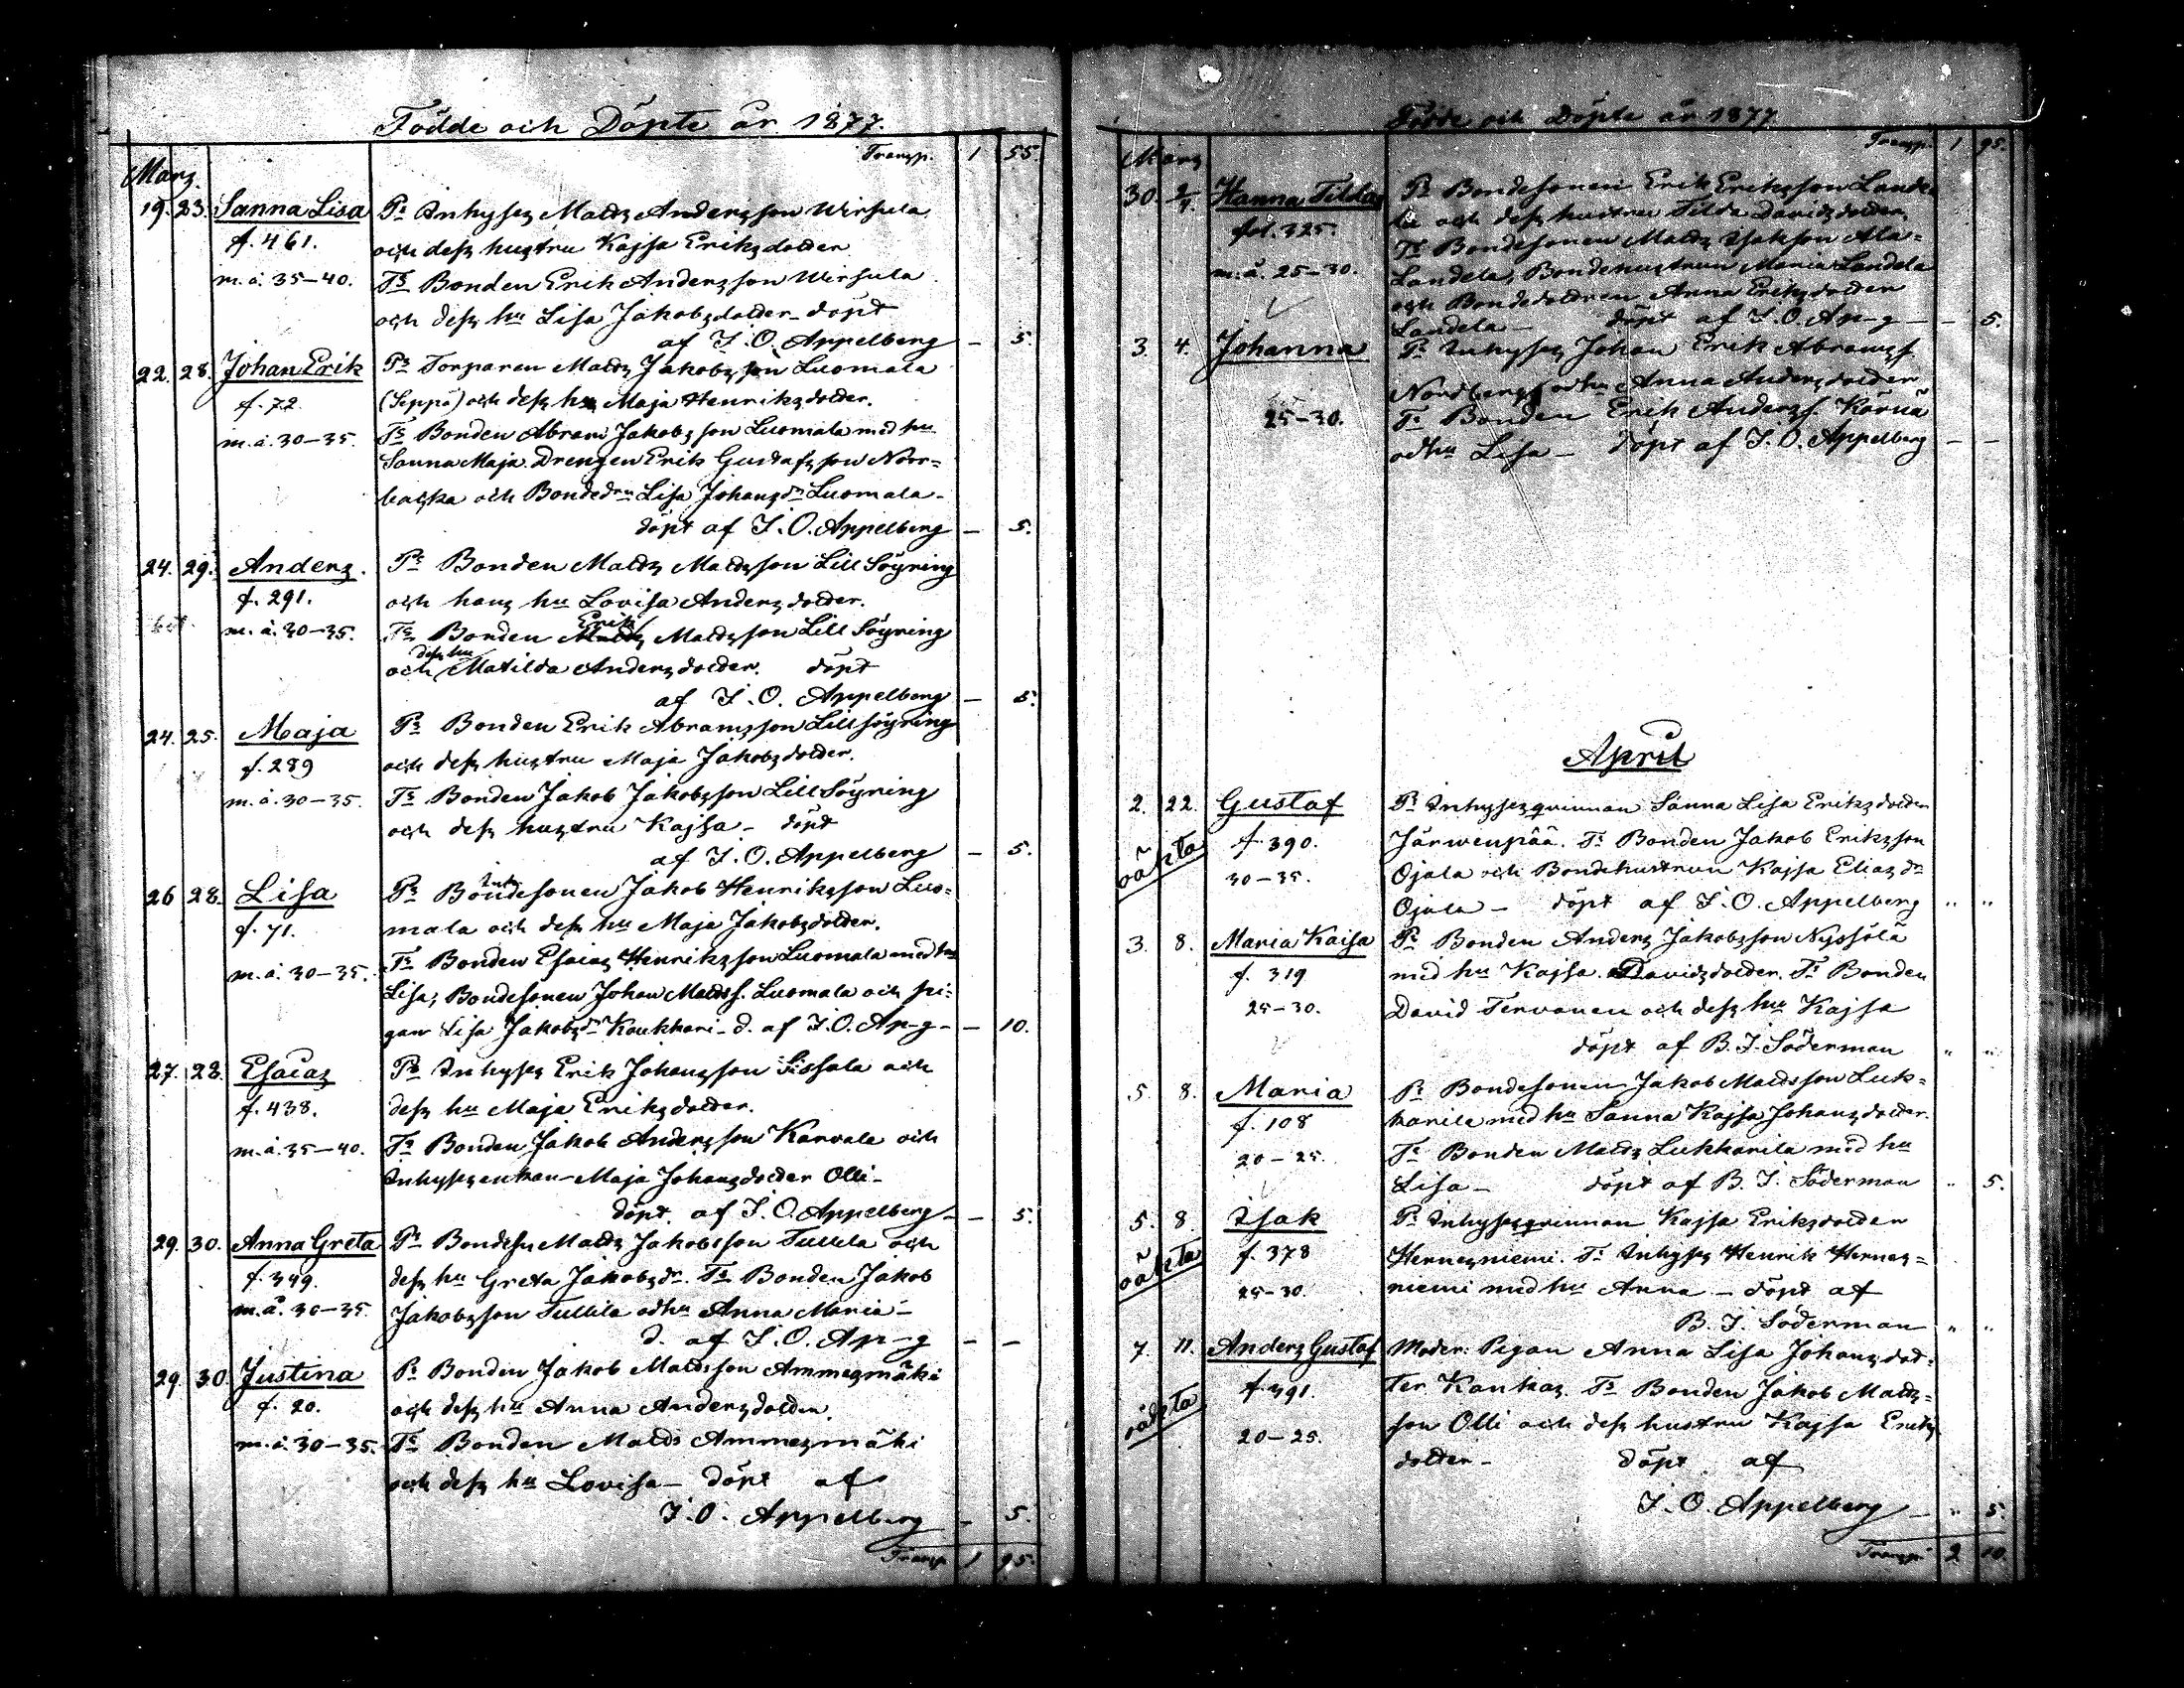 Födde och Döpte år 1877.
Transp. 1 55.
Mars.
19. 23. Sanna Lisa Prs Inhyses Matts Andersson Wirsula
f. 461. och dess hustru Kajsa Eriksdotter
m. å. 35–40. Ts Bonden Erik Andersson Wirsula
och dess hu Lisa Jakobsdotter – döpt
af J. O. Appelberg – 5.
22. 28. Johan Erik Prs Torparen Matts Jakobsson Luomala
f. 72. (Seppä) och dess hu Maja Henriksdotter.
m. å. 30–35. Ts Bonden Abram Jakobsson Luomala med hu
Sanna Maja. Drengen Erik Gustafsson Norr=
backa och Bondedrn Lisa Johansdr Luomala –
döpt af J. O. Appelberg – 5.
24. 29. Anders. Prs Bonden Matts Mattsson Lill Söyring
f. 291. och hans hu Lovisa Andersdotter.
m. å. 30–35. Ts Bonden Erik Mattsson Lill Söyring
och dess hu Matilda Andersdotter. döpt
af J. O. Appelberg – 5.
24. 25. Maja Prs Bonden Erik Abramsson Lillsöyring
f. 289 och dess hustru Maja Jakobsdotter.
m. å. 30–35. Ts Bonden Jakob Jakobsson Lill Söyring
och dess hustru Kajsa – döpt
af J. O. Appelberg – 5.
26 28. Lisa Prs Bondesonen Jakob Henriksson Luo=
f. 71. mala och dess hu Maja Jakobsdotter.
m. å. 30–35. Ts Bonden Esaias Henriksson Luomala med hu
Lisa; Bondesonen Johan Matts s. Luomala och pi=
gan Lisa Jakobsdr Koukkari – d. af J. O. Ap–g – – 10.
27. 28. Esaias Prs Inhyses Erik Johansson Sissala och
f. 438. dess hu Maja Eriksdotter.
m. å. 35–40. Ts Bonden Jakob Andersson Karvala och
Inhysesenkan Maja Johansdotter Olli –
döpt af J. O. Appelberg – – 5.
29. 30. Anna Greta Prs Bondes. Matts Jakobsson Tullila och
f. 349. dess hu Greta Jakobsdr. Ts Bonden Jakob
m. å. 30–35. Jakobsson Tullila o dhu Anna Maria –
d. af J. O. Ap–g – –
29. 30. Justina Prs Bonden Jakob Mattsson Ammesmäki
f. 20. och dess hu Anna Andersdotter.
m. å. 30–35. Ts Bonden Matts Ammesmäki
och dess hu Lovisa – döpt af
J. O. Appelberg – 5.
Transp. 1 95.
Födde och Döpte år 1877
Transp. 1 95.
Mars
30. 2/4. Hanna Tilda Prs Bondesonen Erik Eriksson Lande=
fol. 325. la och dess hustru Tilda Davidsdotter.
Ts Bondesonen Matts Isaksson Ala=
m. å. 25–30. Landela, Bondehustrun Maria Landela
och Bondedottren Anna Eriksdotter
Landela – döpt af J. O. Ap–g – – 5.
3. 4. Johanna Prs Inhyses Johan Erik Abramss.
Nordberg o dhu Anna Andersdotter
25–30. Ts Bonden Erik Anderss. Kärnä
o dhu Lisa – döpt af J. O. Appelberg – –
April
2. 22. Gustaf Prs Inhysesqvinnan Sanna Lisa Eriksdotter
oäkta f. 390. Järwenpää. Ts Bonden Jakob Eriksson
30–35. Ojala och Bondehustrun Kajsa Eliasdr
Ojala – döpt af J. O. Appelberg " "
3. 8. Maria Kaisa Prs Bonden Anders Jakobsson Nyssölä
f. 319 med hu Kajsa Davidsdotter. Ts Bonden
25–30. David Tervonen och dess hu Kajsa
döpt af B. J. Söderman " "
5. 8. Maria Prs Bondesonen Jakob Mattsson Luk=
f. 108 karila med hu Sanna Kajsa Johansdotter.
20–25. Ts Bonden Matts Lukkarila med hu
Lisa – döpt af B. J. Söderman " 5.
5. 8. Isak Prs Inhysesqvinnan Kajsa Eriksdotter
oäkta f. 378 Hernesniemi. Ts Inhyses Henrik Hernes=
25–30. niemi med hu Anna – döpt af
B. J. Söderman " "
7. 11. Anders Gustaf Moder: Pigan Anna Lisa Johansdot=
oäkta f. 391. ter Kankas. Ts Bonden Jakob Matts=
20–25. son Olli och dess hustru Kajsa Eriks
dotter – döpt af
J. O. Appelberg – " 5.
Transp. 2 10.